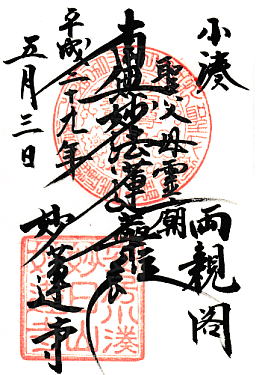 小湊
両親閣
聖父母霊廟
南無妙法蓮華経
妙蓮寺
平成二十九年
五月三日